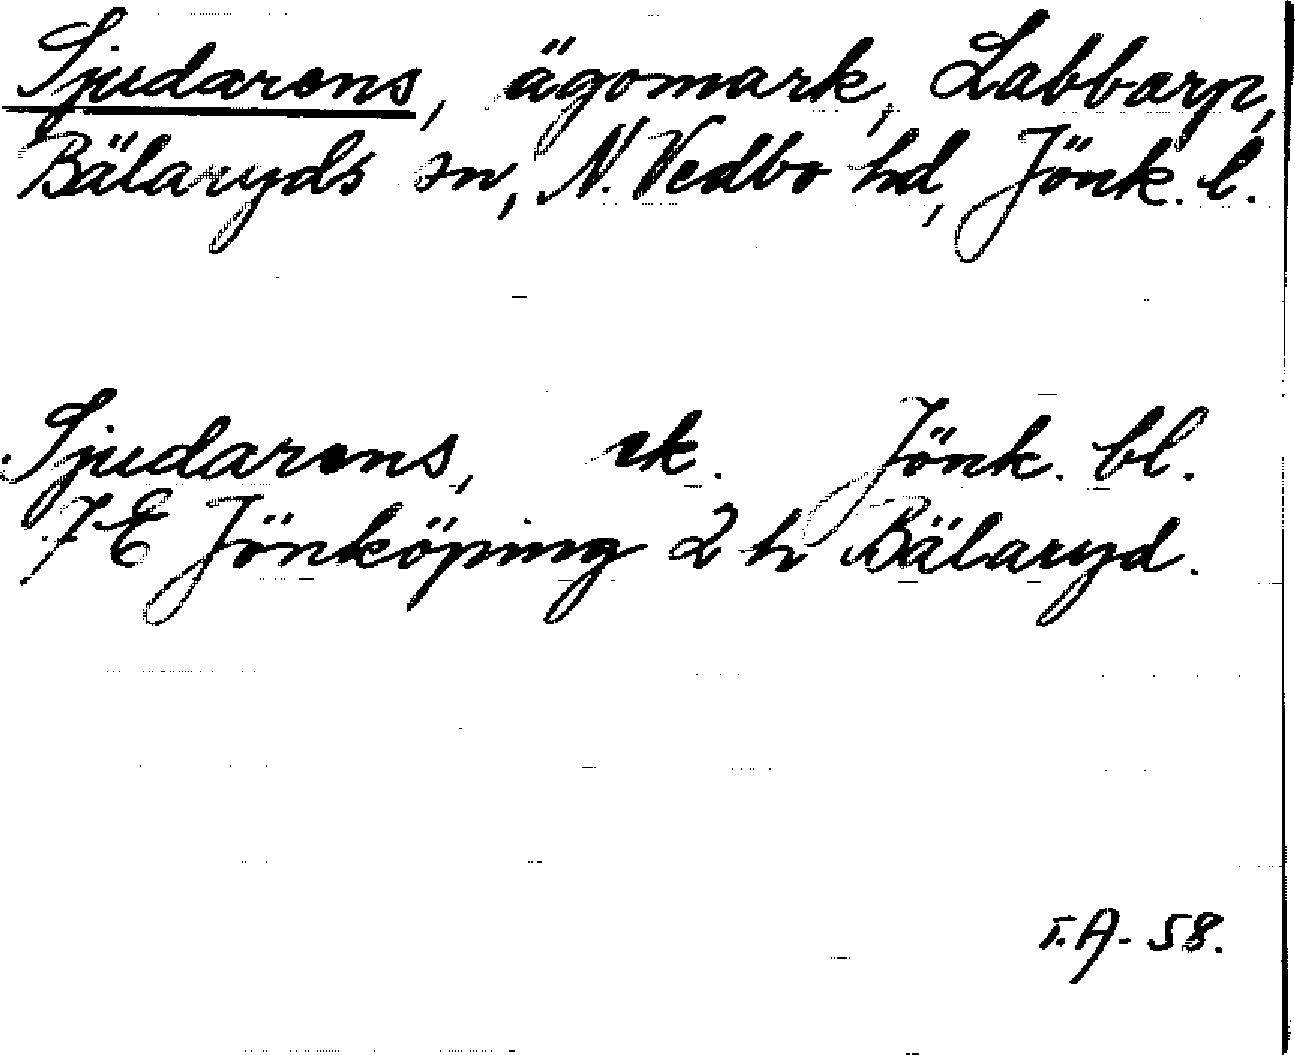 Sjudarens, ägomark, Labbarp,
Bälaryds sn, N. Vedbo hd, Jönk. l.
Sjudarens, ek. Jönk. bl.
7E Jönköping 2 h Bälaryd.
T.A. 58.